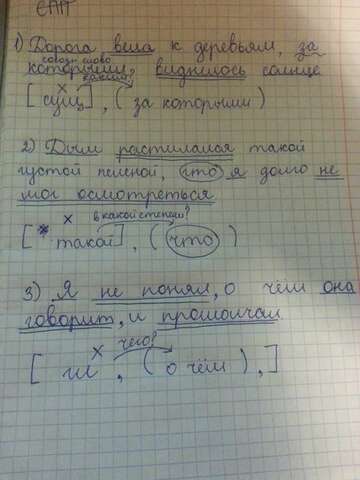 СПП
1) Дорога вела к деревьям, за
союзн. слово
которыми виднелось солнце
какими?
[ сущ. ], ( за которыми )
2) Дым растилался такой
густой пеленой, что я долго не
мог осмотреться.
в какой степени?
[ такой ], ( что )
3) Я не понял, о чём она
говорит, и промолчал.
чего?
[ гл , ( о чём ), ]